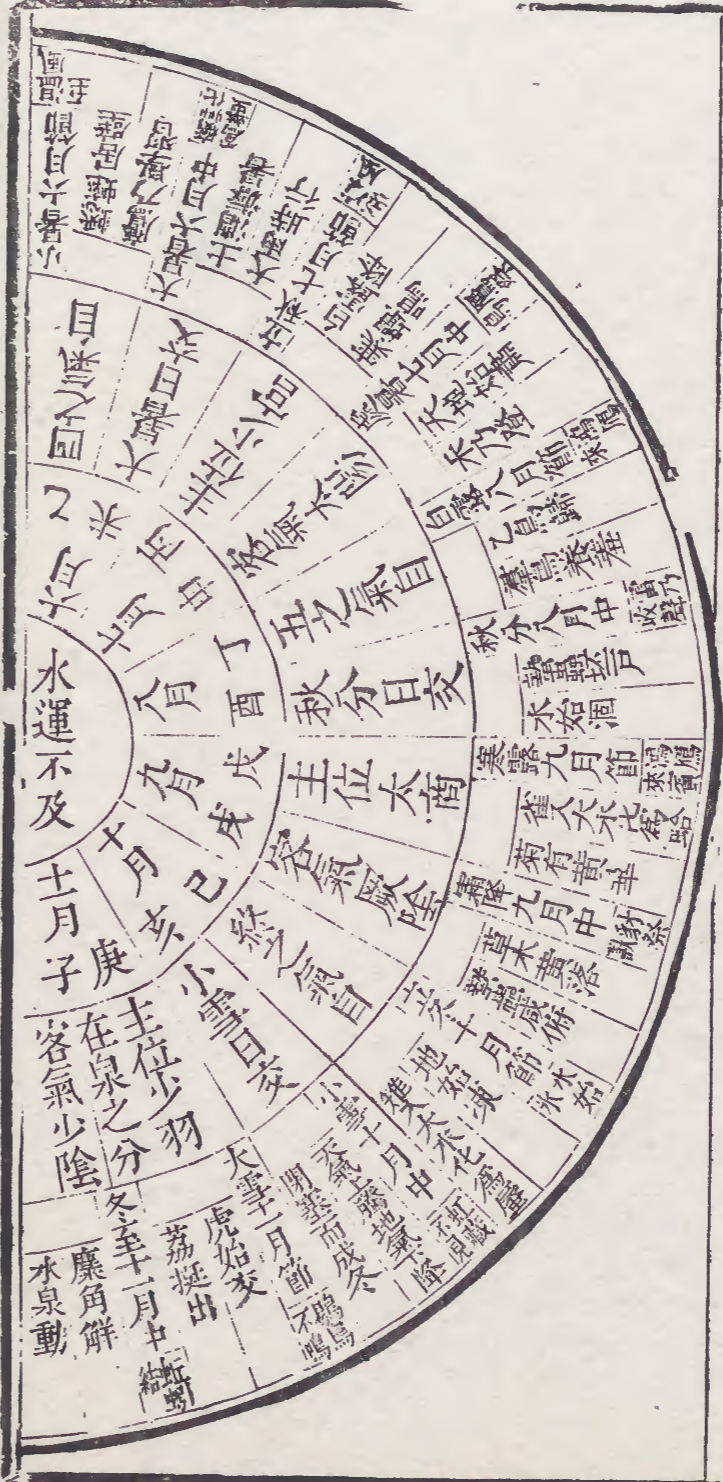 水運不及
六月
乙未
七月
丙申
八月
丁酉
九月
戊戌
十月
己亥
十一月
庚子
四之氣自
大暑日交
主位少宮
客氣太陽
五之氣自
秋分日交
主位太商
客氣厥陰
終之氣自
小雪日交
主位少羽
在泉之分
客氣少陰
小暑六月節 溫風至
蟋蟀居壁
鷹乃學習
大暑六月中
土潤溽暑
大雨時行
立秋七月節 涼風至
白露降
寒蟬鳴
處暑七月中 鷹祭鳥
天地始肅
禾乃登
白露八月節 鴻鴈來
乙鳥歸
羣鳥養羞
秋分八月中 雷乃收聲
蟄蟲坯戶
水始涸
寒露九月節 鴻鴈來賓
雀入大水化爲蛤
菊有黃華
霜降九月中 豺祭獸
草木黃落
蟄蟲咸俯
立冬十月節 水始冰
地始凍
雉入大水化爲蜃
小雪十月中 虹藏不見
天氣上騰地氣下降
閉塞而成冬
大雪十一月節 鶡鳥不鳴
虎始交
荔挺出
冬至十一月中 蚯蚓結
麋角解
水泉動